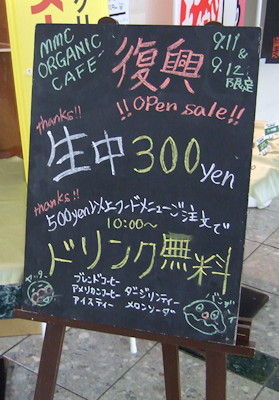 mmc
ORGANIC
CAFE'
9.11
&
9.12
限定
復興
!! OPen sale!!
thanks!!
生中300yen
thanks!!
500yen以上フードメニューご注文で
10:00~
ドリンク無料
ブレンドコーヒー
アメリカンコーヒー ダージリンティー
アイスティー メロンソーダ